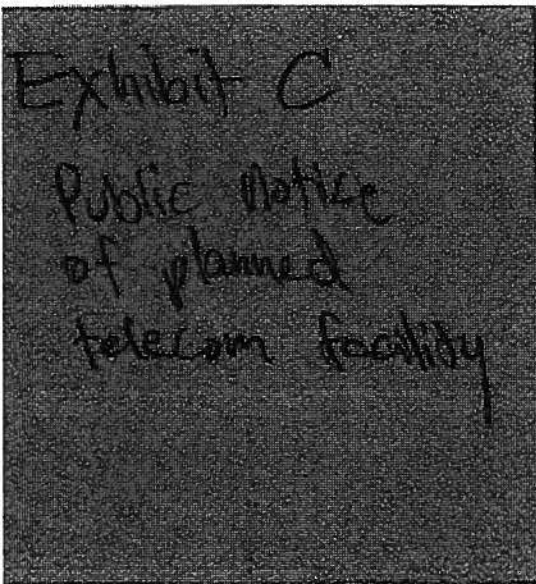 Exhibit C
Public Notice
of planned
telecom facility